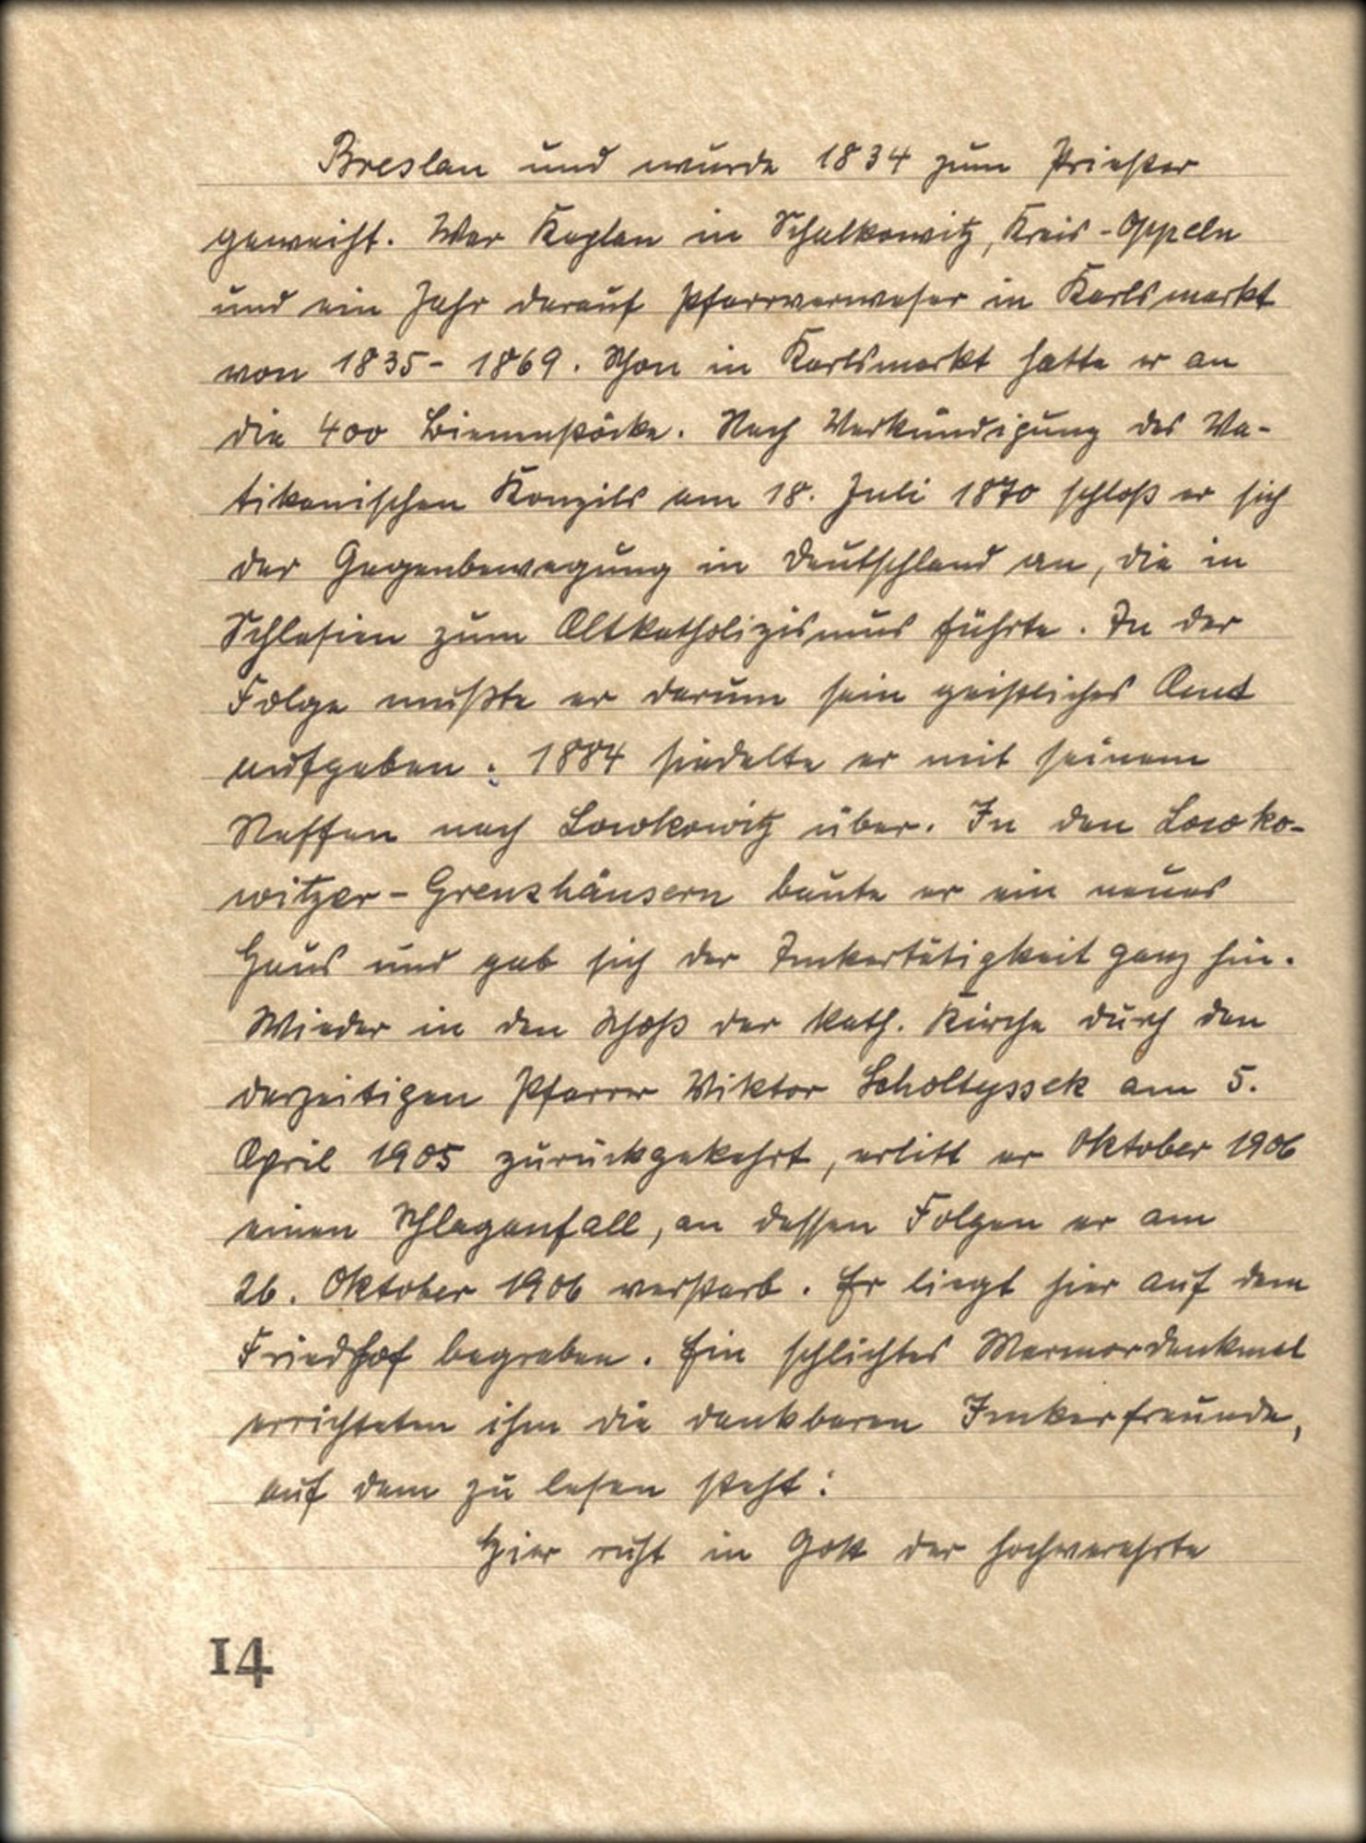 Breslau und wurde 1834 zum Priester
geweiht. War Kaplan in Schalkowitz, Kreis-Oppeln
und ein Jahr darauf Pfarrverweser in Karlsmarkt
von 1835 - 1869. Schon in Karlsmarkt hatte er an
die 400 Bienenstöcke. Nach Verkündigung des Va-
tikanischen Konzils am 18. Juli 1870 schloß er sich
der Gegenbewegung in Deutschland an, die in
Schlesien zum Altkatholizismus führte. In der
Folge mußte er darum sein geistliches Amt
aufgeben. 1884 siedelte er mit seinem
Neffen nach Lowkowitz über. In den Lowko-
witzer-Grenzhäusern baute er ein neues
Haus und gab sich der Imkertätigkeit ganz hin.
Wieder in den Schoß der kath. Kirche durch den
derzeitigen Pfarrer Viktor Scholtyssek am 5.
April 1905 zurückgekehrt, erlitt er Oktober 1906
einen Schlaganfall, an dessen Folgen er am
26. Oktober 1906 verstarb. Er liegt hier auf dem
Friedhof begraben. Ein schlichtes Marmordenkmal
errichteten ihm die dankbaren Imkerfreunde,
auf dem zu lesen steht:
Hier ruht in Gott der hochverehrte
14